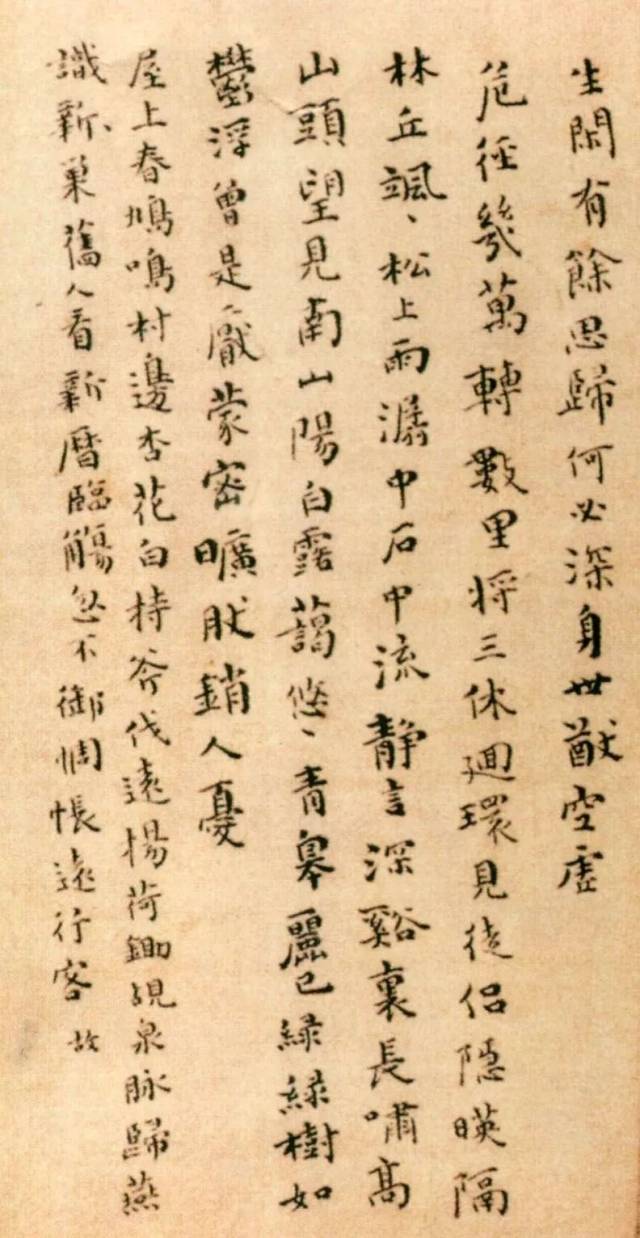 生閑有餘思歸何必深身世猷空虛
危徑幾萬轉數里将三休廻環見徒侣隱暎隔
林丘颯、松上雨潺中石中流静言深谿裏長嘯高
山頭望見南山陽白露藹悠、青皋麗已緑緑樹如
鬱浮曾是厭蒙密曠肰銷人憂
屋上春鳩鳴村邊杏花白持斧伐遠楊荷鋤覘泉脉歸燕
識新、巢舊人看新曆臨觴忽不御惆悵遠行客 故